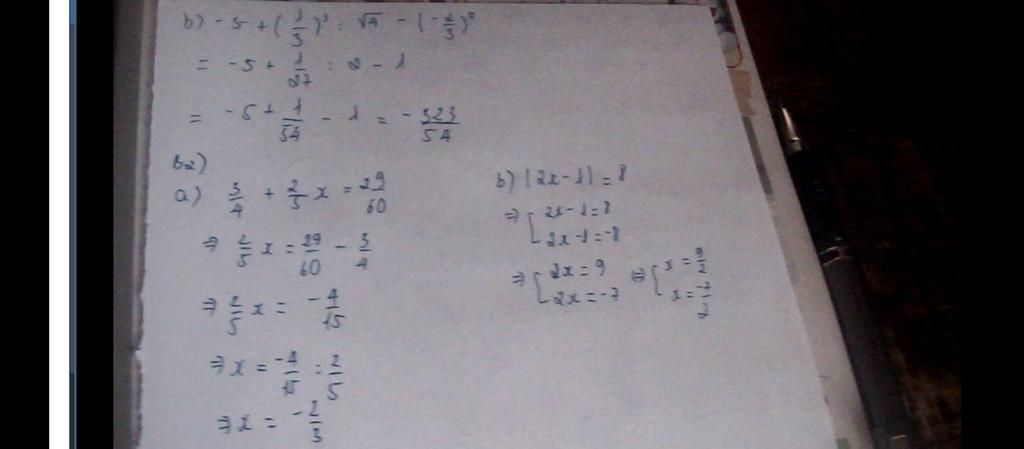 b) -5 + (1/3)³ : √4 - (-2/3)⁰
= -5 + 1/27 : 2 - 1
= -5 + 1/54 - 1 = -323/54
b2)
a) 3/4 + 2/5 x = 29/60
⇒ 2/5 x = 29/60 - 3/4
⇒ 2/5 x = -4/15
⇒ x = -4/15 : 2/5
⇒ x = -2/3
b) |2x-1| = 8
⇒ [ 2x-1=8
2x-1=-8
⇒ [ 2x=9
2x=-7
⇔ [ x=9/2
x=-7/2